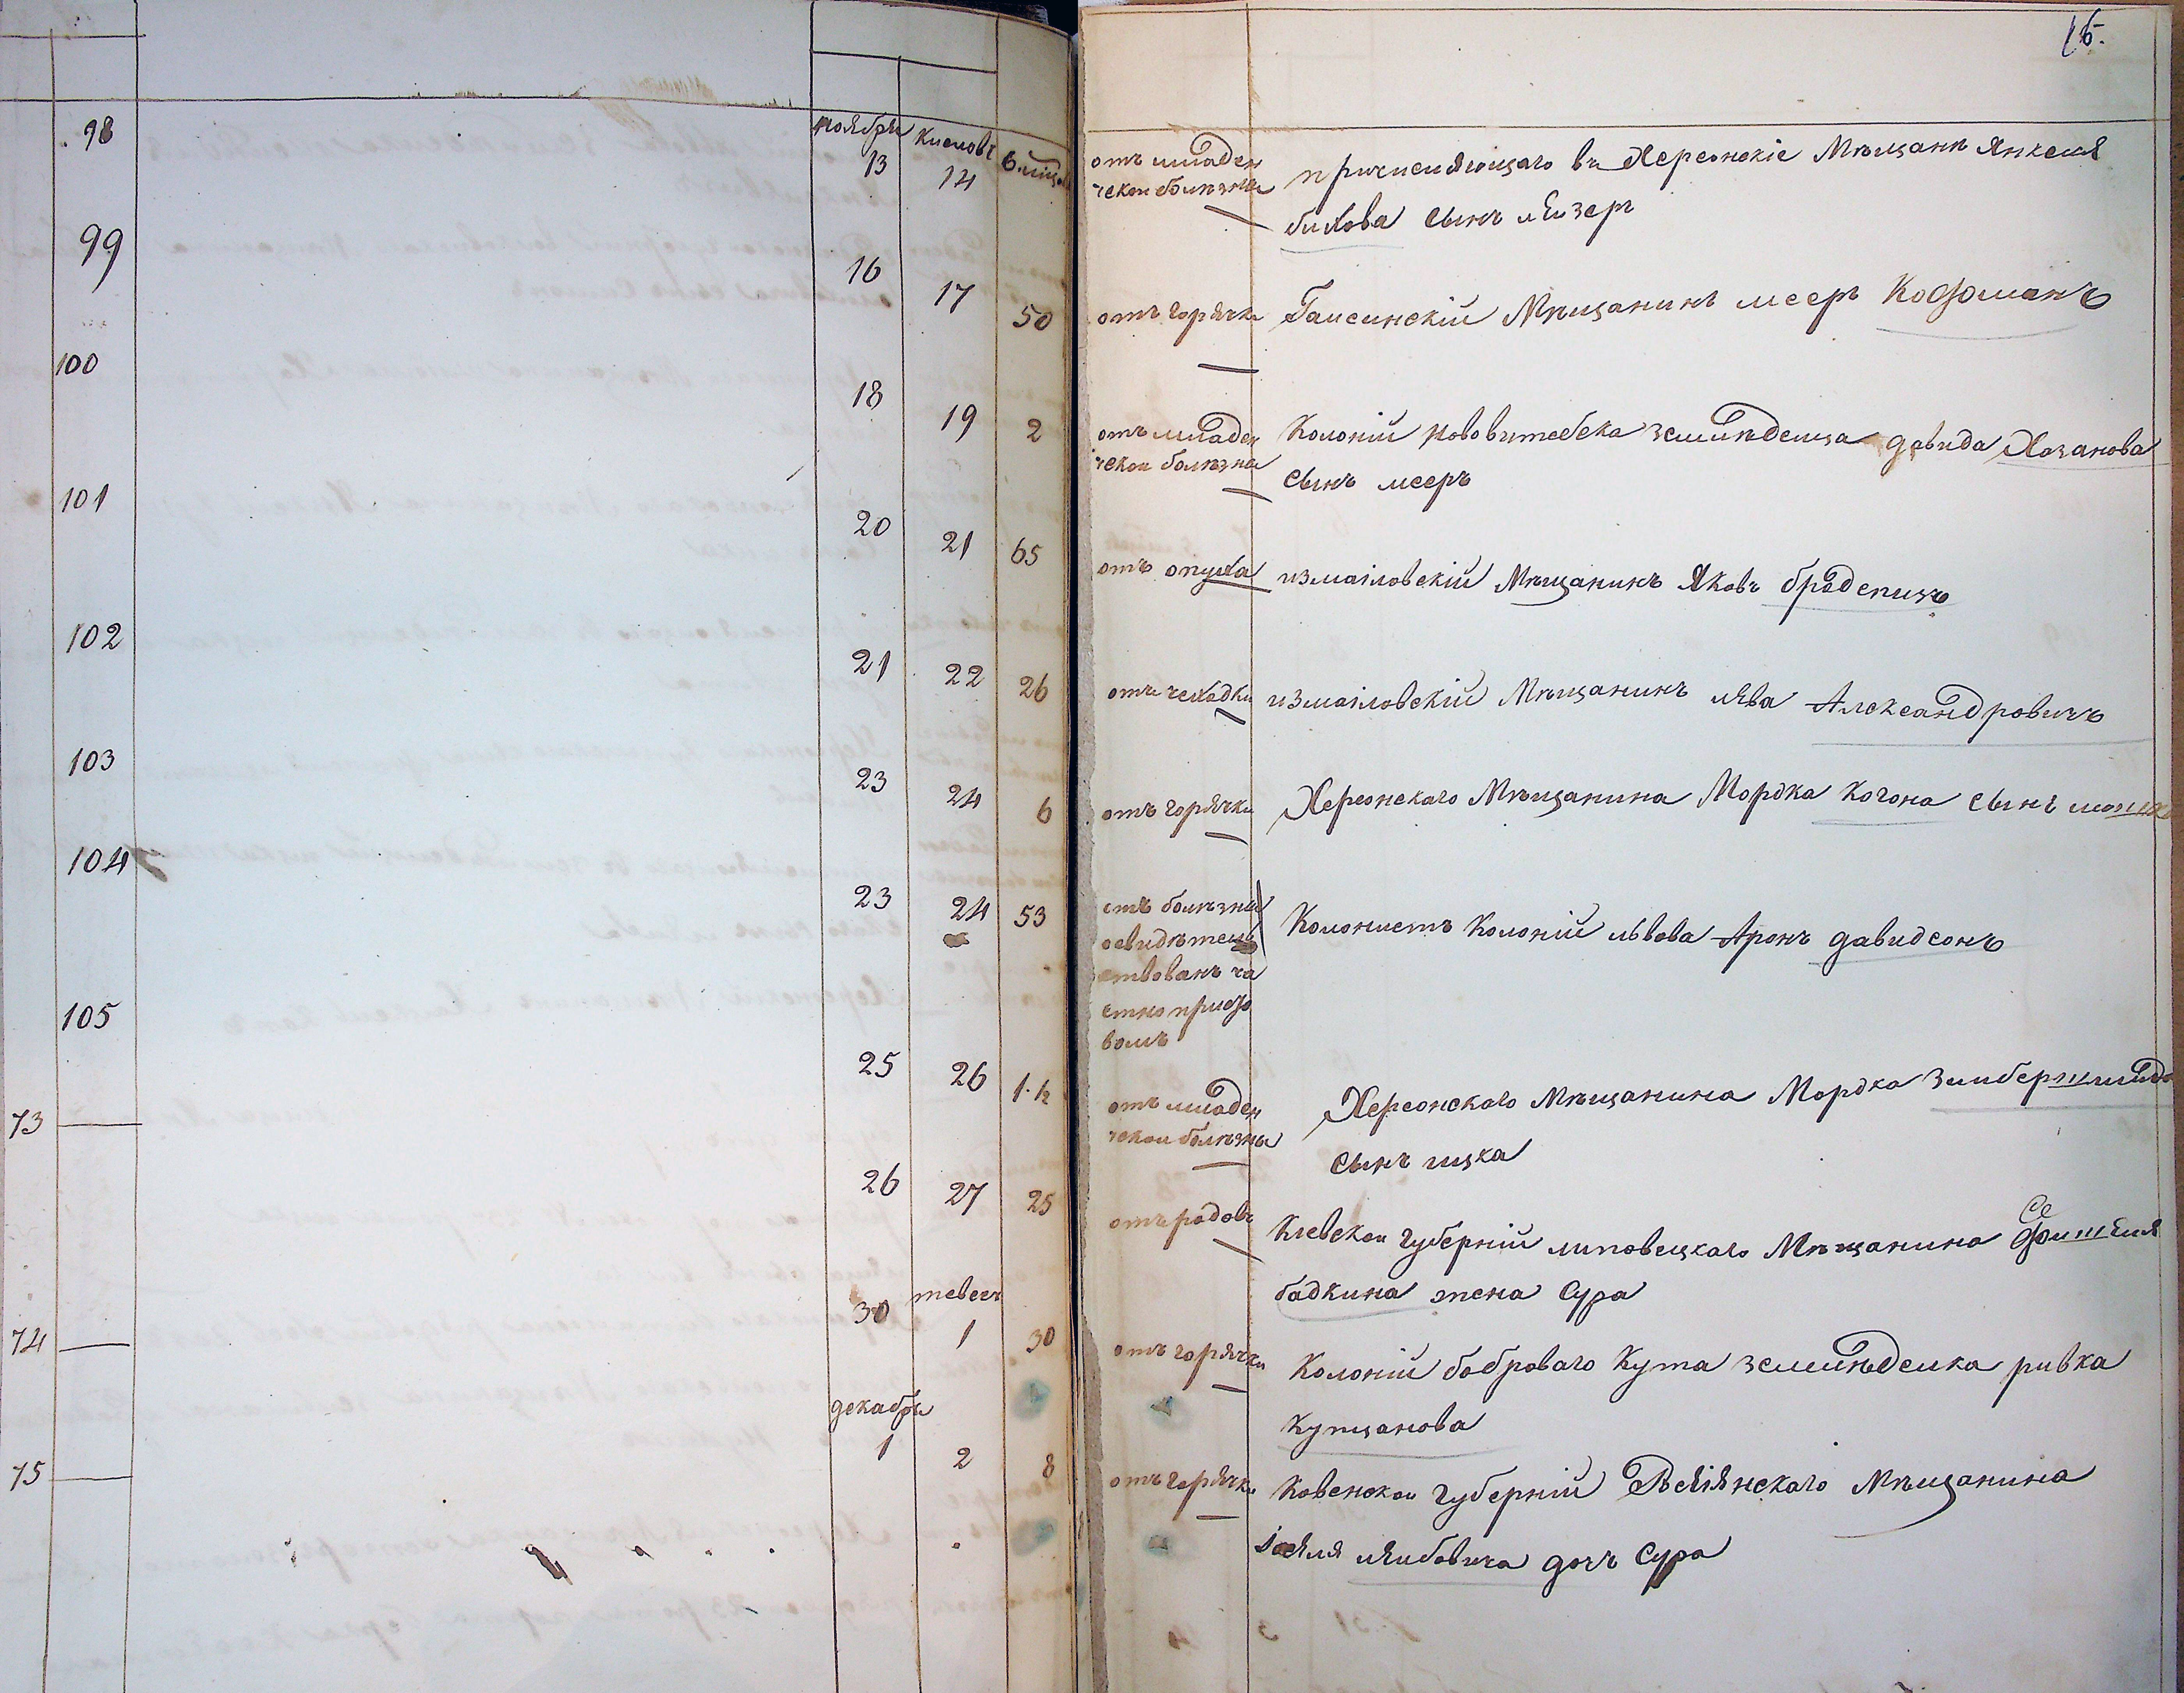 16.
98
ноября
13
Кислевъ
14
6. мѣсяц
отъ младен
ческой болѣзни
причисляющаго въ Херсонскіе Мѣщане Янкеля
бихова сынъ лейзеръ
99
16
17
50
отъ горячки
Гайсинскій Мѣщанинъ мееръ Кофманъ
100
18
19
2
отъ младен
ческой болѣзни
Колоній нововитебска земледельца давида Хазанова
сынъ мееръ
101
20
21
65
отъ опуха
измаиловскій Мѣщанинъ Яковъ
102
21
22
26
отъ чехадки
измаиловскій Мѣщанинъ лява Александровичъ
103
23
24
6
отъ горячки
Херсонскаго Мѣщанина Мордка Когона сынъ
104
23
24
53
отъ болѣзни
освидѣтель
ствованъ ча
стно приста
вомъ
Колонистъ Колоній львова Аронъ давидсонъ
105
25
26
1.½
отъ младен
ческой болѣзни
Херсонскаго Мѣщанина Мордка Зимбершмида
сынъ ицка
73
26
27
25
отъ родовъ
Кіевской губерній липовецкаго Мѣщанина Фишеля
бадкина жена Сура
74
30
тевесъ
1
30
отъ горячки
Колоній боброваго Кута земледелка ривка
Купцанова
75
декабря
1
2
8
отъ горячки
Ковенской губерній Мѣщанина
лейбовича дочъ Сура